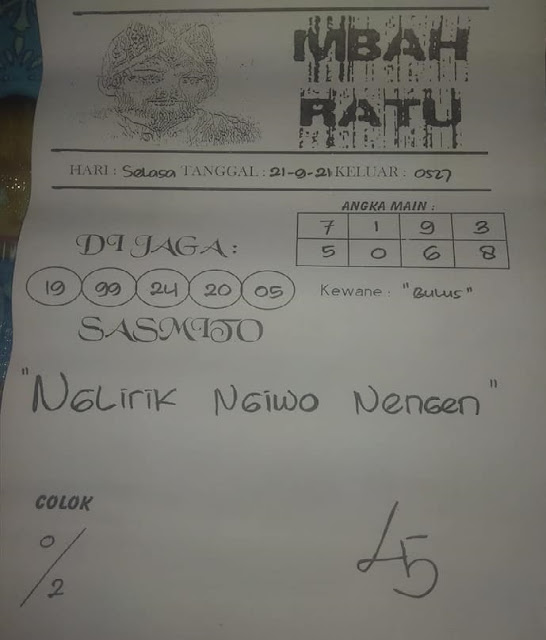 MBAH
RATU
HARI : Selasa TANGGAL : 21-9-21 KELUAR : 0527
ANGKA MAIN :
7 1 9 3
5 0 6 8
DI JAGA :
19 99 24 20 05
Kewane : "Bulus"
SASMITO
"NGLirik NGiwo NeNGeN"
COLOK
0/2
45